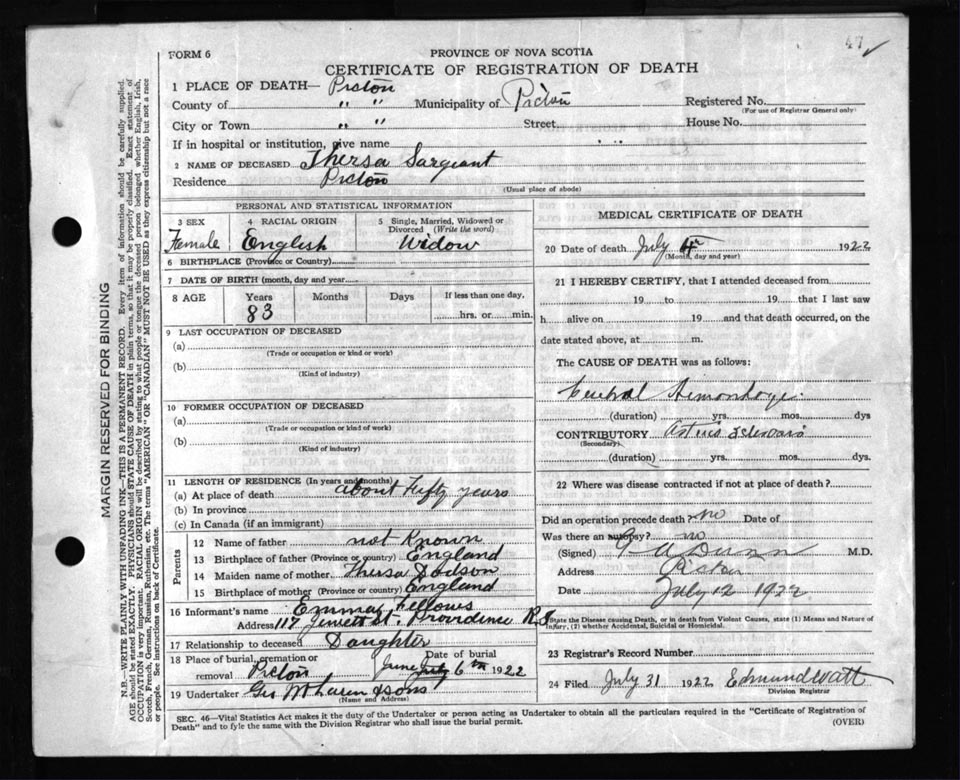 47 ✓
FORM 6
PROVINCE OF NOVA SCOTIA
CERTIFICATE OF REGISTRATION OF DEATH
1 PLACE OF DEATH— Pictou
County of " " Municipality of Pictou Registered No.
(For use of Registrar General only)
City or Town " " Street House No.
If in hospital or institution, give name
2 NAME OF DECEASED Thersa Sargeant
Residence Pictou
(Usual place of abode)
PERSONAL AND STATISTICAL INFORMATION
3 SEX Female
4 RACIAL ORIGIN English
5 Single, Married, Widowed or Divorced (Write the word) Widow
6 BIRTHPLACE (Province or Country)
7 DATE OF BIRTH (month, day and year)
8 AGE Years Months Days If less than one day,
83 hrs. or min.
9 LAST OCCUPATION OF DECEASED
(a)
(Trade or occupation or kind or work)
(b)
(Kind of industry)
10 FORMER OCCUPATION OF DECEASED
(a)
(Trade or occupation or kind of work)
(b)
(Kind of industry)
11 LENGTH OF RESIDENCE (In years and months)
(a) At place of death about Fifty years
(b) In province
(c) In Canada (if an immigrant)
Parents
12 Name of father not Known
13 Birthplace of father (Province or country) England
14 Maiden name of mother Thersa Dodson
15 Birthplace of mother (Province or country) England
16 Informant's name Emma Fellows
Address 117 Jewett St. Providence R.I
17 Relationship to deceased Daughter
18 Place of burial, cremation or removal Pictou Date of burial June July 6th 1922
19 Undertaker Geo & Sons
(Name and Address)
MEDICAL CERTIFICATE OF DEATH
20 Date of death July 4 1922
(Month, day and year)
21 I HEREBY CERTIFY, that I attended deceased from
19 to 19 that I last saw
h alive on 19 and that death occurred, on the
date stated above, at m.
The CAUSE OF DEATH was as follows:
Cerebral Hemorrhage
(duration) yrs. mos. dys
CONTRIBUTORY
(Secondary)
(duration) yrs. mos. dys.
22 Where was disease contracted if not at place of death?
Did an operation precede death? no Date of
Was there an autopsy? no
(Signed) M.D.
Address Pictou
Date July 12 1922
State the Disease causing Death, or in death from Violent Causes, state (1) Means and Nature of
Injury, (2) whether Accidental, Suicidal or Homicidal.
23 Registrar's Record Number
24 Filed July 31 1922 Edmund Watt
Division Registrar
SEC. 46—Vital Statistics Act makes it the duty of the Undertaker or person acting as Undertaker to obtain all the particulars required in the "Certificate of Registration of
Death" and to fyle the same with the Division Registrar who shall issue the burial permit.
(OVER)
MARGIN RESERVED FOR BINDING
N.B.—WRITE PLAINLY WITH UNFADING INK—THIS IS A PERMANENT RECORD. Every item of information should be carefully supplied.
AGE should be stated EXACTLY. PHYSICIANS should STATE CAUSE OF DEATH in plain terms, so that it may be properly classified. Exact statement of
OCCUPATION is very important. RACIAL ORIGIN will be described by stating to what people or tongue the deceased person belonged whether English, Irish,
Scotch, French, German, Russian, Ruthenian, etc. The terms "AMERICAN" OR "CANADIAN" MUST NOT BE USED as they express citizenship but not a race
or people. See instructions on back of Certificate.